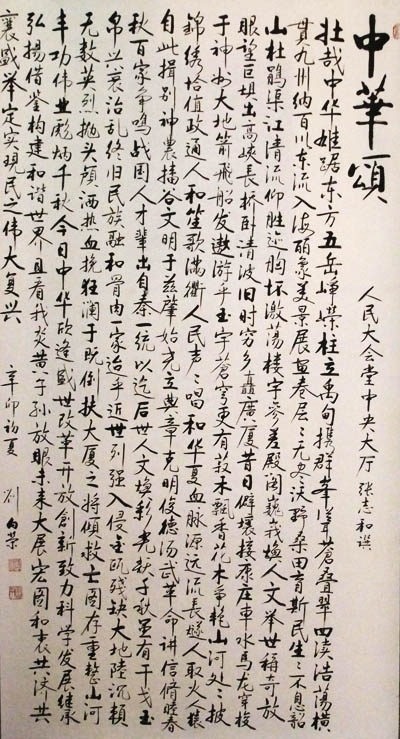 中華頌
人民大会堂中央大厅 张志和撰
壮哉中华雄踞东方五岳峥嵘柱立禹甸携群峰苍叠翠四渎浩荡横
贯九州纳百川东流入海丽象美景展画卷层层无尽沃野桑田育斯民生生不息韶
山杜鹃渠江清流仰胜迹胸坏激荡楼宇参差殿阁巍峨焕人文举世称奇放
眼望巨坝出高峡长桥卧清波旧时穷乡矗广厦昔日僻壤接康庄车水马龙穿梭
于神州大地箭飞船发遨游乎玉宇苍穹更有菽木飘香花木争艳山河处处披
锦绣恰值政通人和笙歌满衢人民声声唱和华夏血脉源远流长燧人取火人猿
自此揖别神农播谷文明于兹肇始尧立典章克明俊德汤武革命讲信脩睦春
秋百家争鸣战国人才辈出自秦一统以迄后世人文焕彩光耿千秋虽有干戈玉
帛兴衰治乱终归民族融和骨肉一家治乎近世列强入侵金瓯残缺大地陆沉赖
无数英烈抛头颅洒热血挽狂澜于既倒扶大厦之将倾救亡图存重整山河
丰功伟业彪炳千秋今日中华欣逢盛世改革开放创新致力科学发展继承
弘扬借鉴构建和谐世界且看我炎黄子孙放眼未来大展宏图和衷共济共
襄盛举定实现民之伟大复兴 辛卯初夏 刘向荣